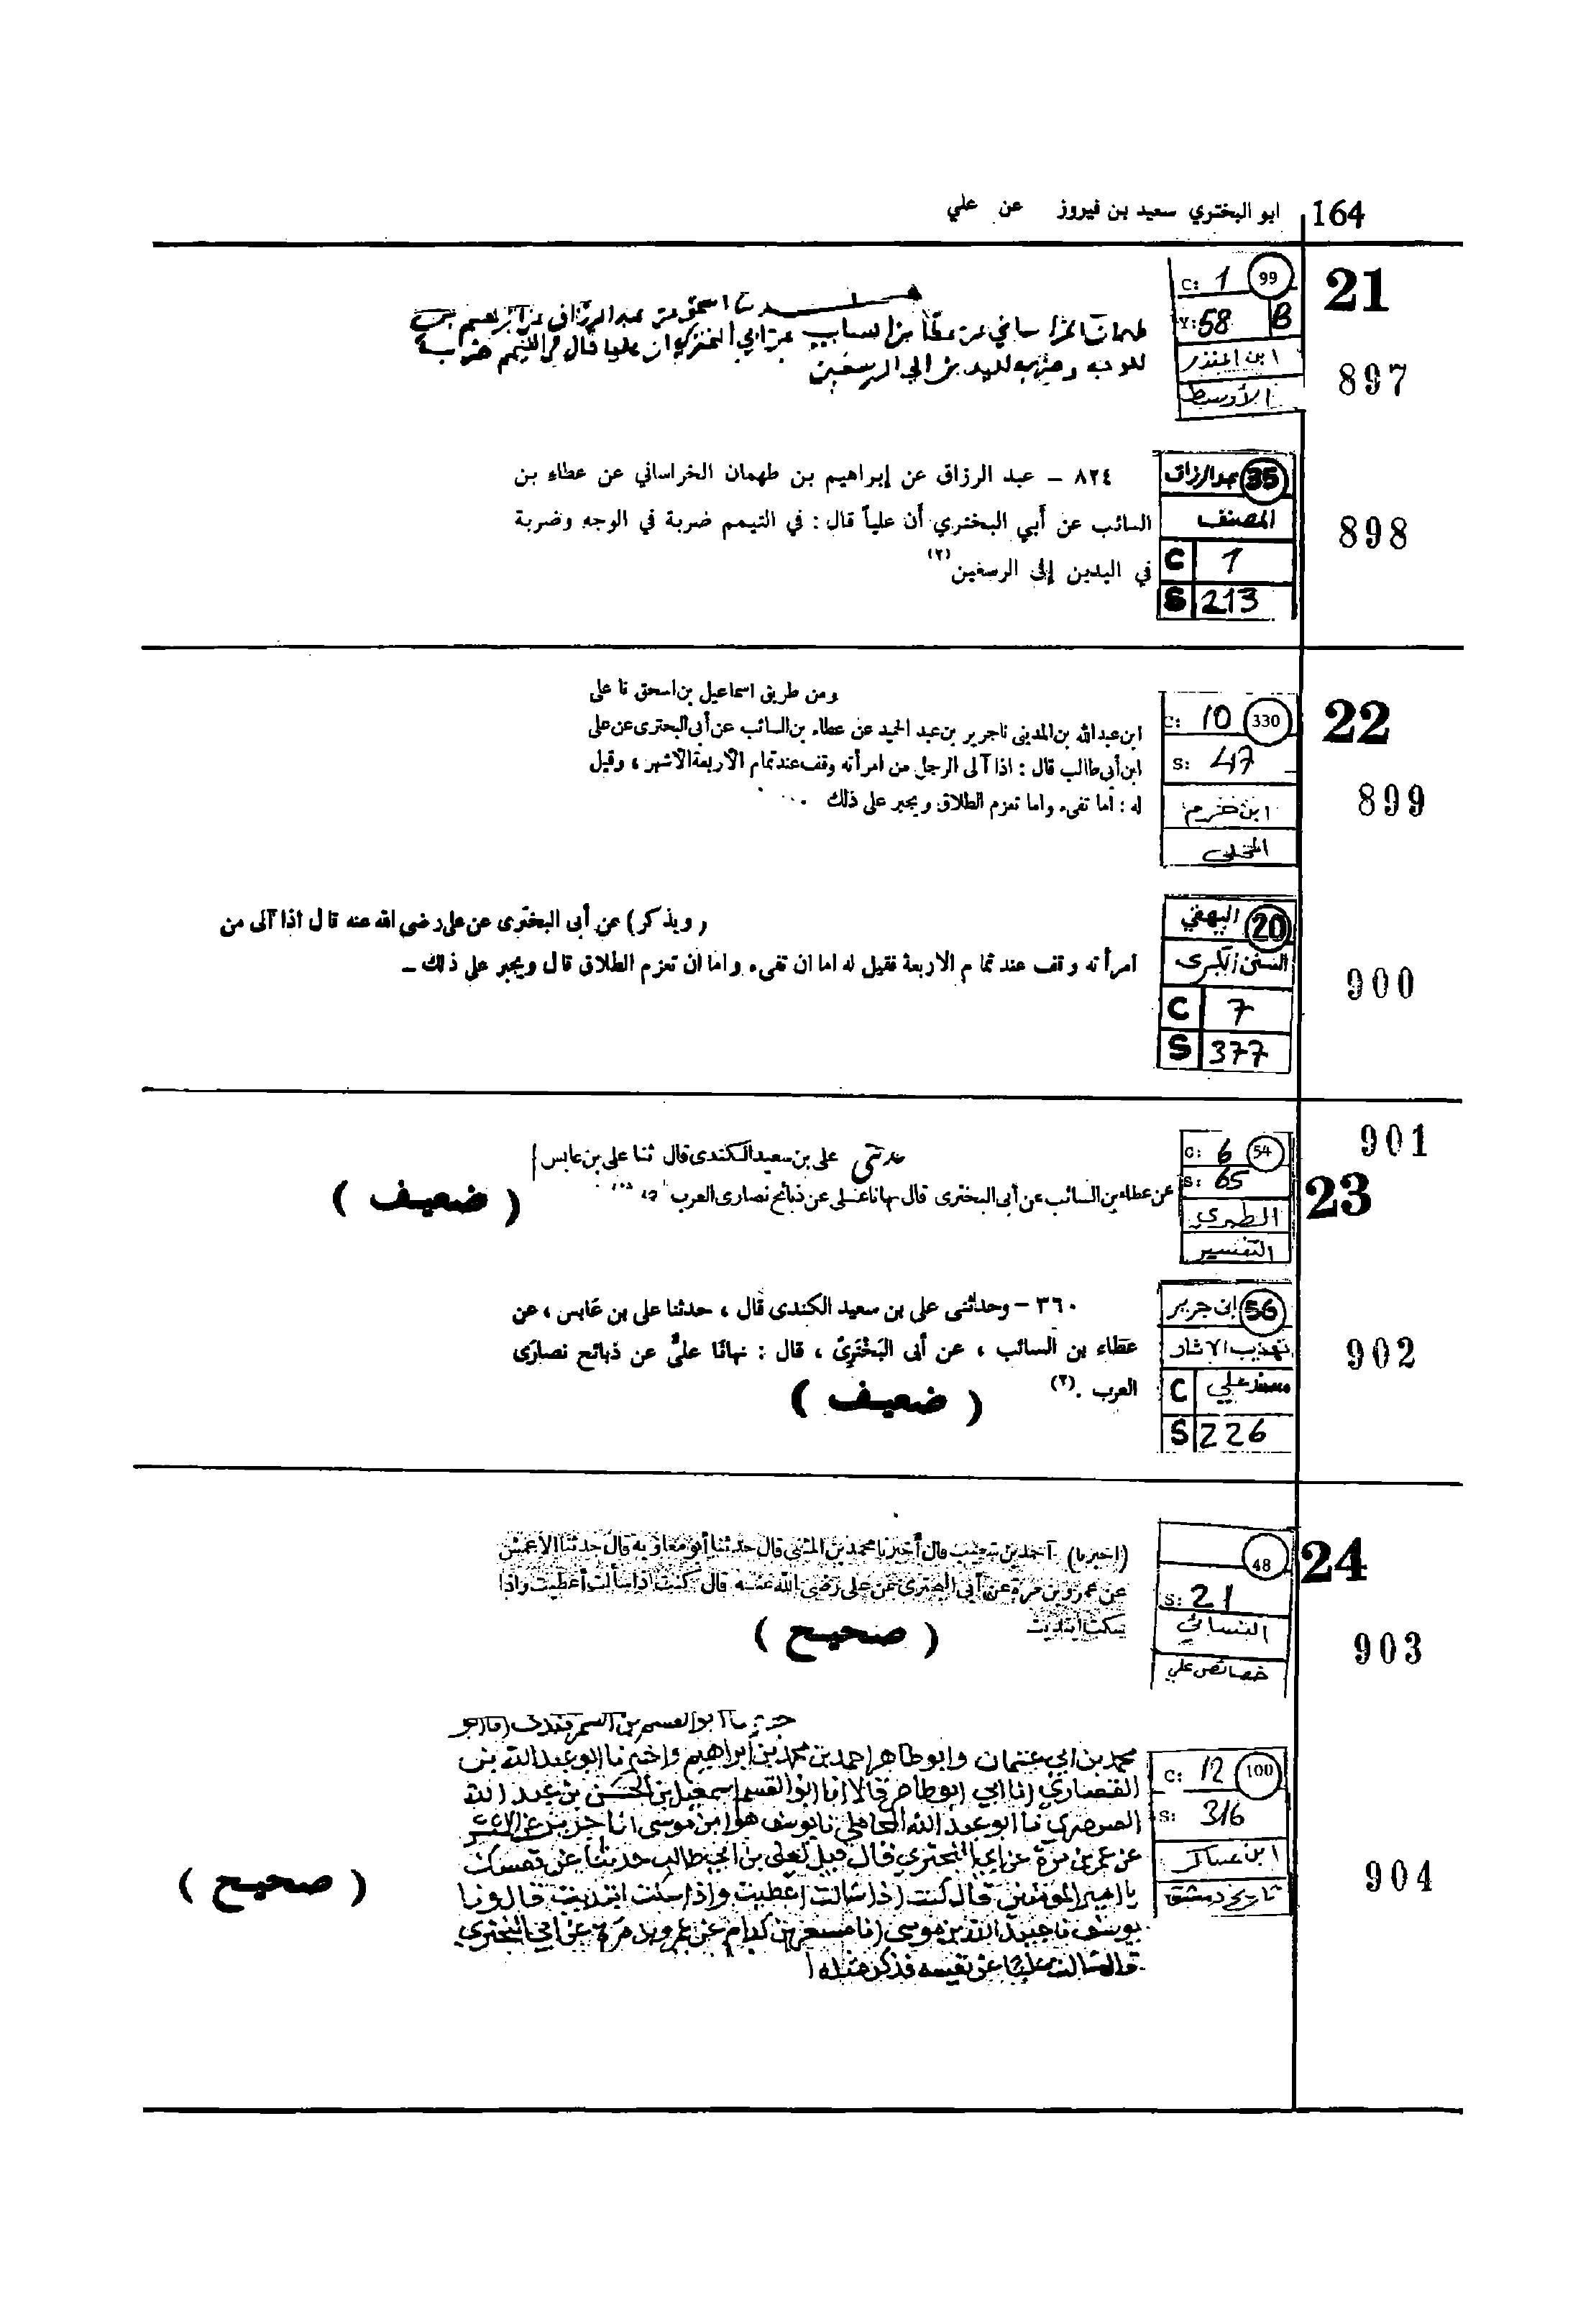 164 ابو البختري سعيد بن فيروز عن علي
21
C: 1 99
Y: 58 B
ابن المنذر
الأوسط
897
حدثنا اسحق عن عبد الرزاق عن ابرهيم بن
طهمان الخراساني عن عطا بن السايب عن ابي البختري ان عليا قال في التيمم ضربة
للوجه وضربة لليدين الى الرسغين
35 عبد الرزاق
المصنف
C 1
S 213
898
٨٢٤ – عبد الرزاق عن إبراهيم بن طهمان الخراساني عن عطاء بن
السائب عن أبي البختري أن علياً قال : في التيمم ضربة في الوجه وضربة
في اليدين إلى الرسغين (٢)
22
C: 10 330
S: 47
ابن حزم
المحلى
899
ومن طريق اسماعيل بن اسحق نا على
ابن عبدالله بن المديني نا جرير بن عبد الحميد عن عطاء بن السائب عن أبي البختري عن على
ابن أبي طالب قال : اذا آلى الرجل من امرأته وقف عند تمام الأربعة الأشهر ، وقيل
له : اما تفيء واما تعزم الطلاق ويجبر على ذلك
20 البيهقي
السنن الكبرى
C 7
S 377
900
( ويذكر ) عن أبى البخترى عن على رضى الله عنه قال اذا آلى من
امرأته وقف عند تمام الاربعة فقيل له اما ان تفىء واما ان تعزم الطلاق قال ويجبر على ذلك –
901
C: 6 54
S: 65
23
الطبري
التفسير
حدثني على بن سعيد الكندى قال ثنا على بن عابس
عن عطاء بن السائب عن أبى البخترى قال نهانا على عن ذبائح نصارى العرب
( ضعيف )
56 ابن جرير
تهذيب الاثار
C مسند علي
S 226
902
٣٦٠ – وحدثنى على بن سعيد الكندى قال ، حدثنا على بن عَابس ، عن
عطاء بن السائب ، عن أبى البَخْتَرِىّ ، قال : نهانَا علىٌّ عن ذبائح نصارَى
العرب . (٢)
( ضعيف )
24
48
S: 21
النسائي
خصائص علي
903
(اخبرنا) احمد بن شعيب قال أخبرنا محمد بن المثنى قال حدثنا أبو معاوية قال حدثنا الاعمش
عن عمرو بن مرة عن أبي البخترى عن على رضى الله عنه قال كنت اذا سألت أعطيت واذا
سكت ابتديت
( صحيح )
C: 12 100
S: 316
ابن عساكر
تاريخ دمشق
904
ابو القسم بن السمرقندي انا ابو
محمد بن ابي عثمان وابو طاهر احمد بن محمد بن ابراهيم واخبرنا ابو عبد الله بن
القصاري انا ابي ابو طاهر قالا انا ابو القسم اسمعيل بن الحسن بن عبد الله
الصرصري نا ابو عبد الله المحاملي نا يوسف هو ابن موسى انا جرير عن الاعمش
عن عمرو بن مرة عن ابي البختري قال قيل لعلي بن ابي طالب حدثنا عن نفسك
يا امير المومنين قال كنت اذا سالت اعطيت واذا سكت ابتديت قال ونا
يوسف نا عبيد الله بن موسى انا مسعر بن كدام عن عمرو بن مرة عن ابي البختري
قال سالت عليا عن نفسه فذكر مثله
( صحيح )